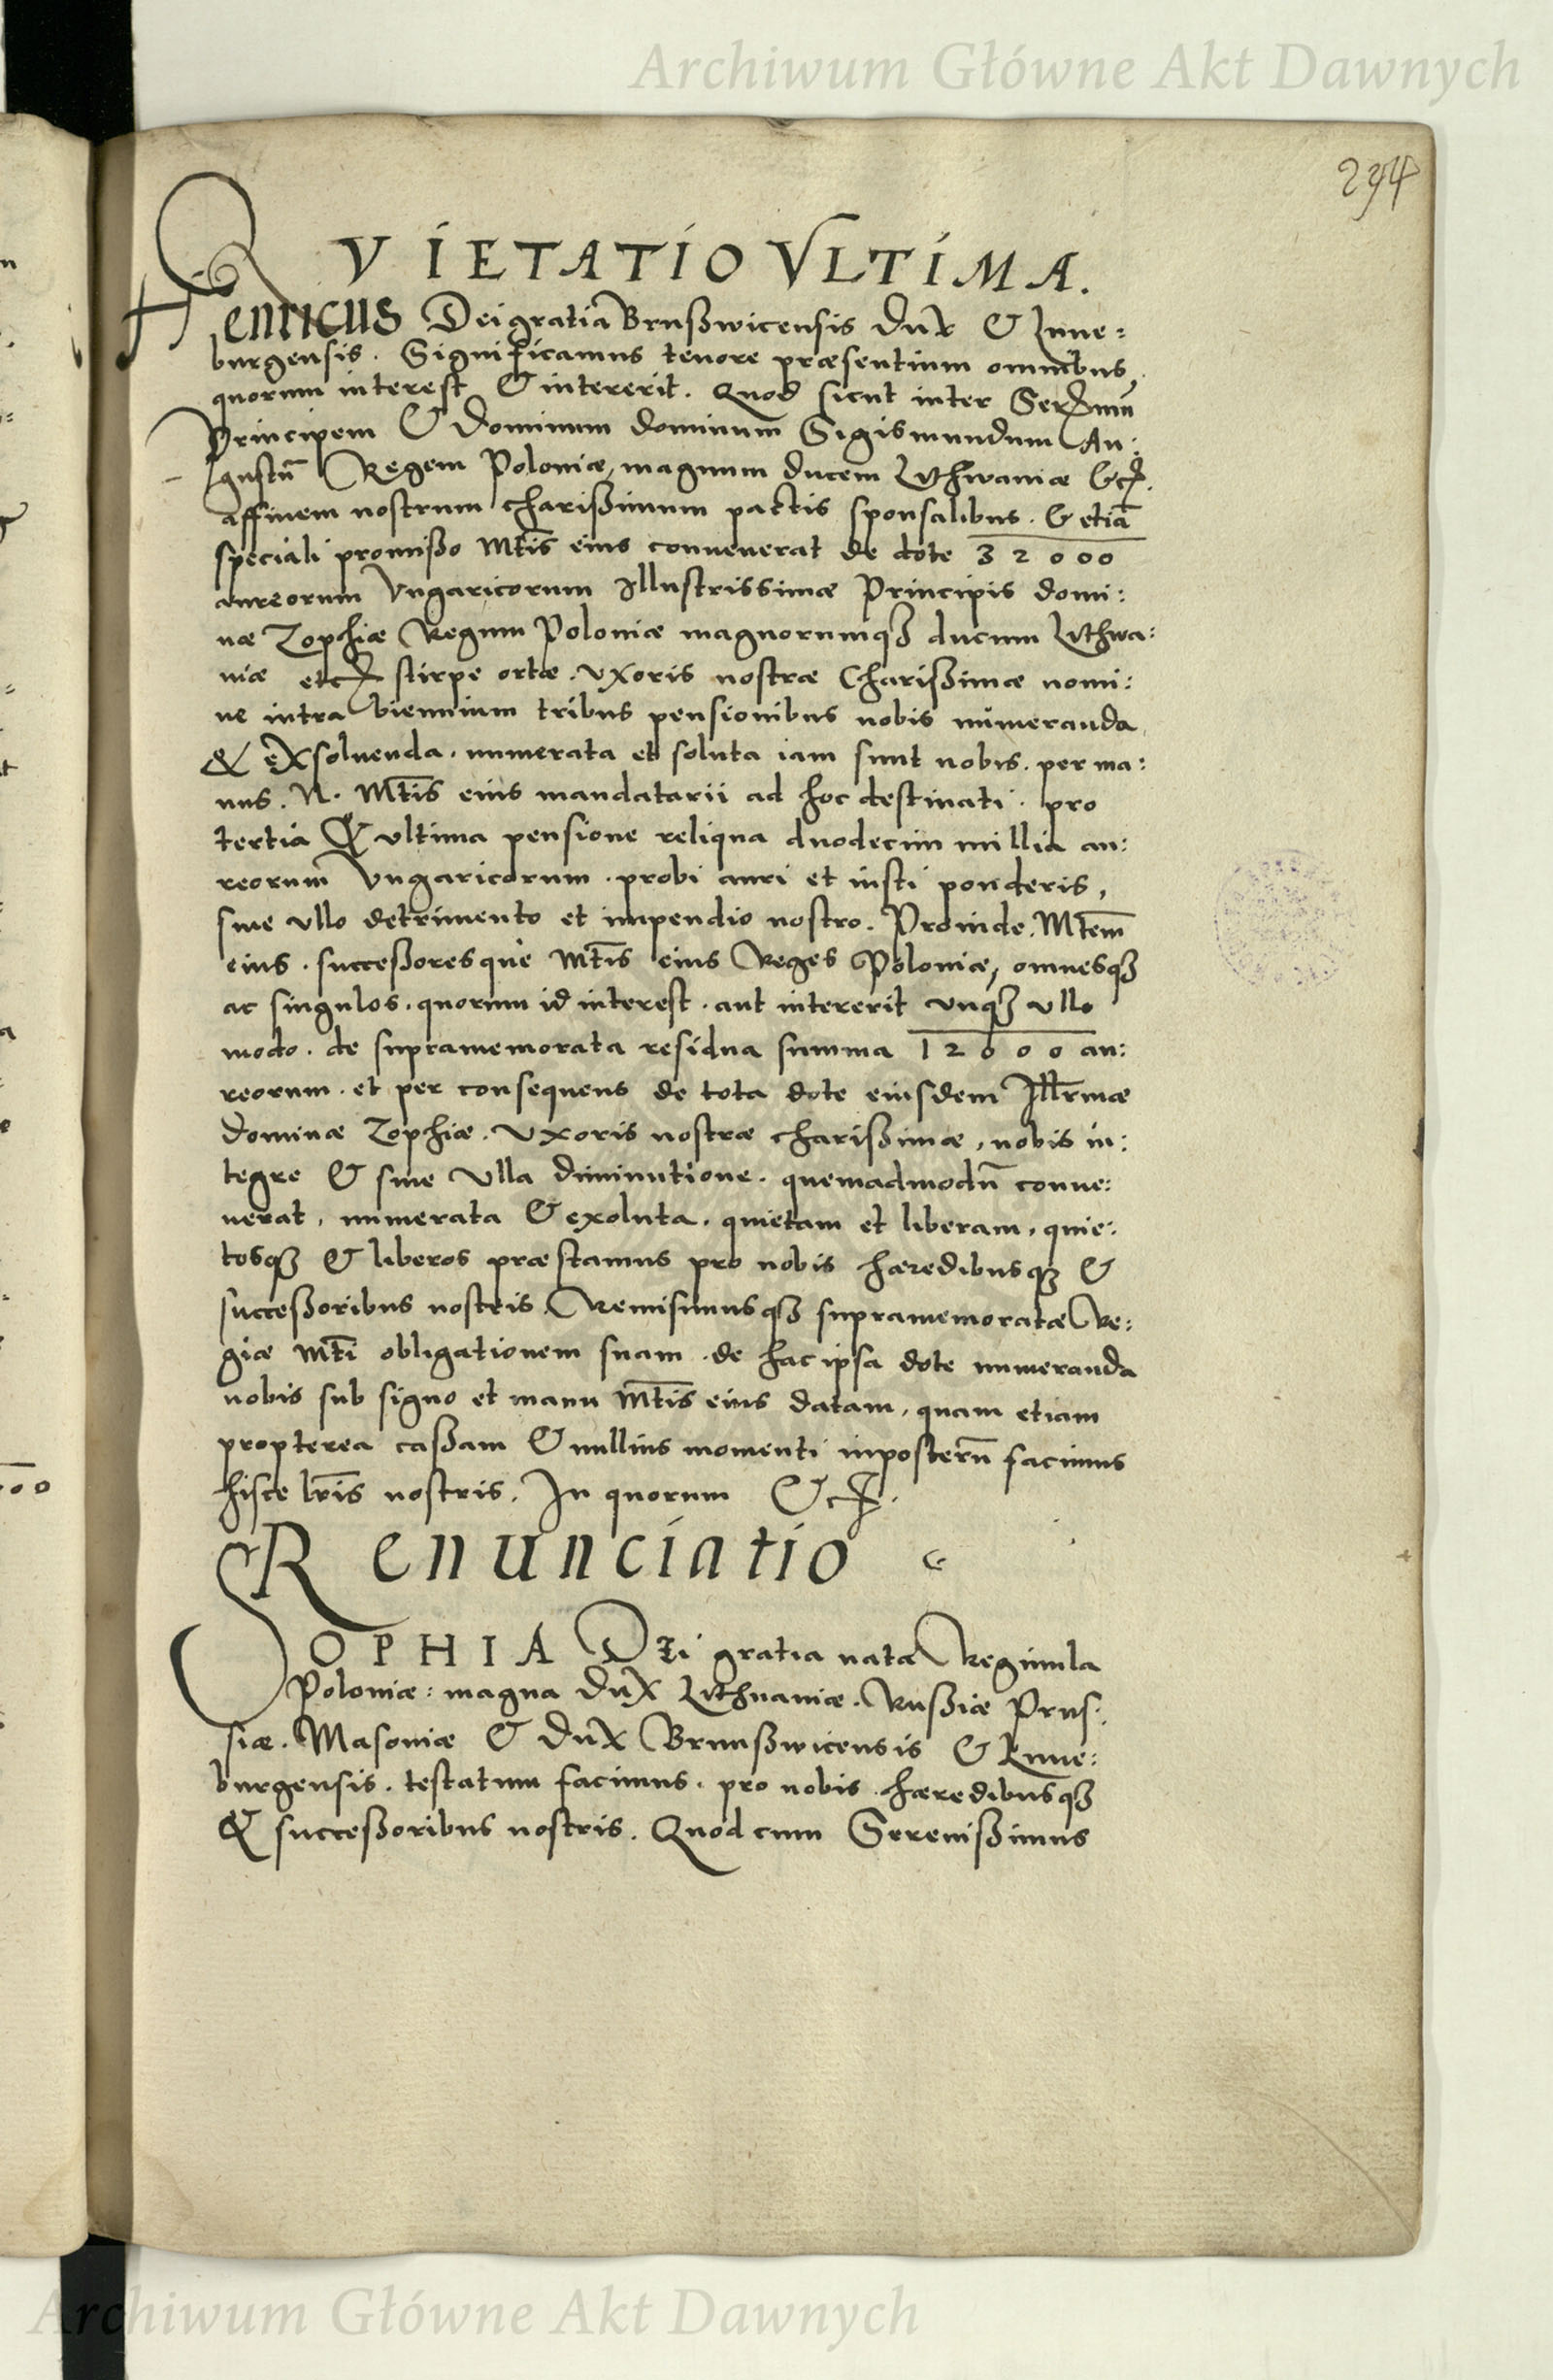 Archiwum Główne Akt Dawnych
294
QVIETATIO VLTIMA.
Henricus Dei gratia Brusßwicensis Dux & Lune:
burgensis. Significamus tenore præsentium omnibus,
quorum interest & intererit. Quod sicut inter Sereñmũ
Principem & Dominum dominum Sigismundum Au:
gustũ Regem Poloniæ, magnum ducem Lithwaniæ &c.
affinem nostrum charißimum pactis sponsalibus. & etiã
speciali promißo Mt̃is eius convenerat de dote 32000
aureorum Vngaricorum Illustrissimæ Principis domi:
næ Zophiæ Regum Poloniæ magnorumqꝫ ducum Lithwa:
niæ etc. stirpe ortæ. Vxoris nostræ Charißimæ nomi:
ne intra biennium tribus pensionibus nobis numeranda
& exsoluenda. numerata et soluta iam sunt nobis. per ma:
nus. N. Mt̃is eius mandatarii ad hoc destinati. pro
tertia & vltima pensione reliqua duodecim millia au:
reorum Vngaricorum. probi auri et iusti ponderis,
sine vllo detrimento et impendio nostro. Proinde. Mt̃em
eius. successoresque Mt̃is eius Reges Poloniæ, omnesqꝫ
ac singulos. quorum id interest. aut intererit vnqꝫ vllo
modo. de supramemorata residua summa 12000 au:
reorum. et per consequens de tota dote eiusdem Ill̃rmæ
Dominæ Zophiæ. Vxoris nostræ charißimæ, nobis in:
tegre & sine vlla diminutione. quemadmodũ conue:
nerat, numerata & exoluta. quietam et liberam, quie:
tosqꝫ & liberos præstamus pro nobis hæredibusqꝫ &
succeßoribus nostris. Remisimusqꝫ supramemoratæ Re:
giæ Mt̃i obligationem suam. de hac ipsa dote numeranda
nobis sub signo et manu Mt̃is eius datam, quam etiam
propterea caßam & nullius momenti inposterũ facimus
hisce lr̃is nostris. In quorum &c.
Renunciatio
SOPHIA Dei gratia nata Reginula
Poloniæ: magna Dux Lithuaniæ. Rußiæ Prus:
siæ. Masoniæ & Dux Brunßwicensis & Lune:
burgensis. testatum facimus. pro nobis hæredibusqꝫ
& succeßoribus nostris. Quod cum Serenißimus
Archiwum Główne Akt Dawnych